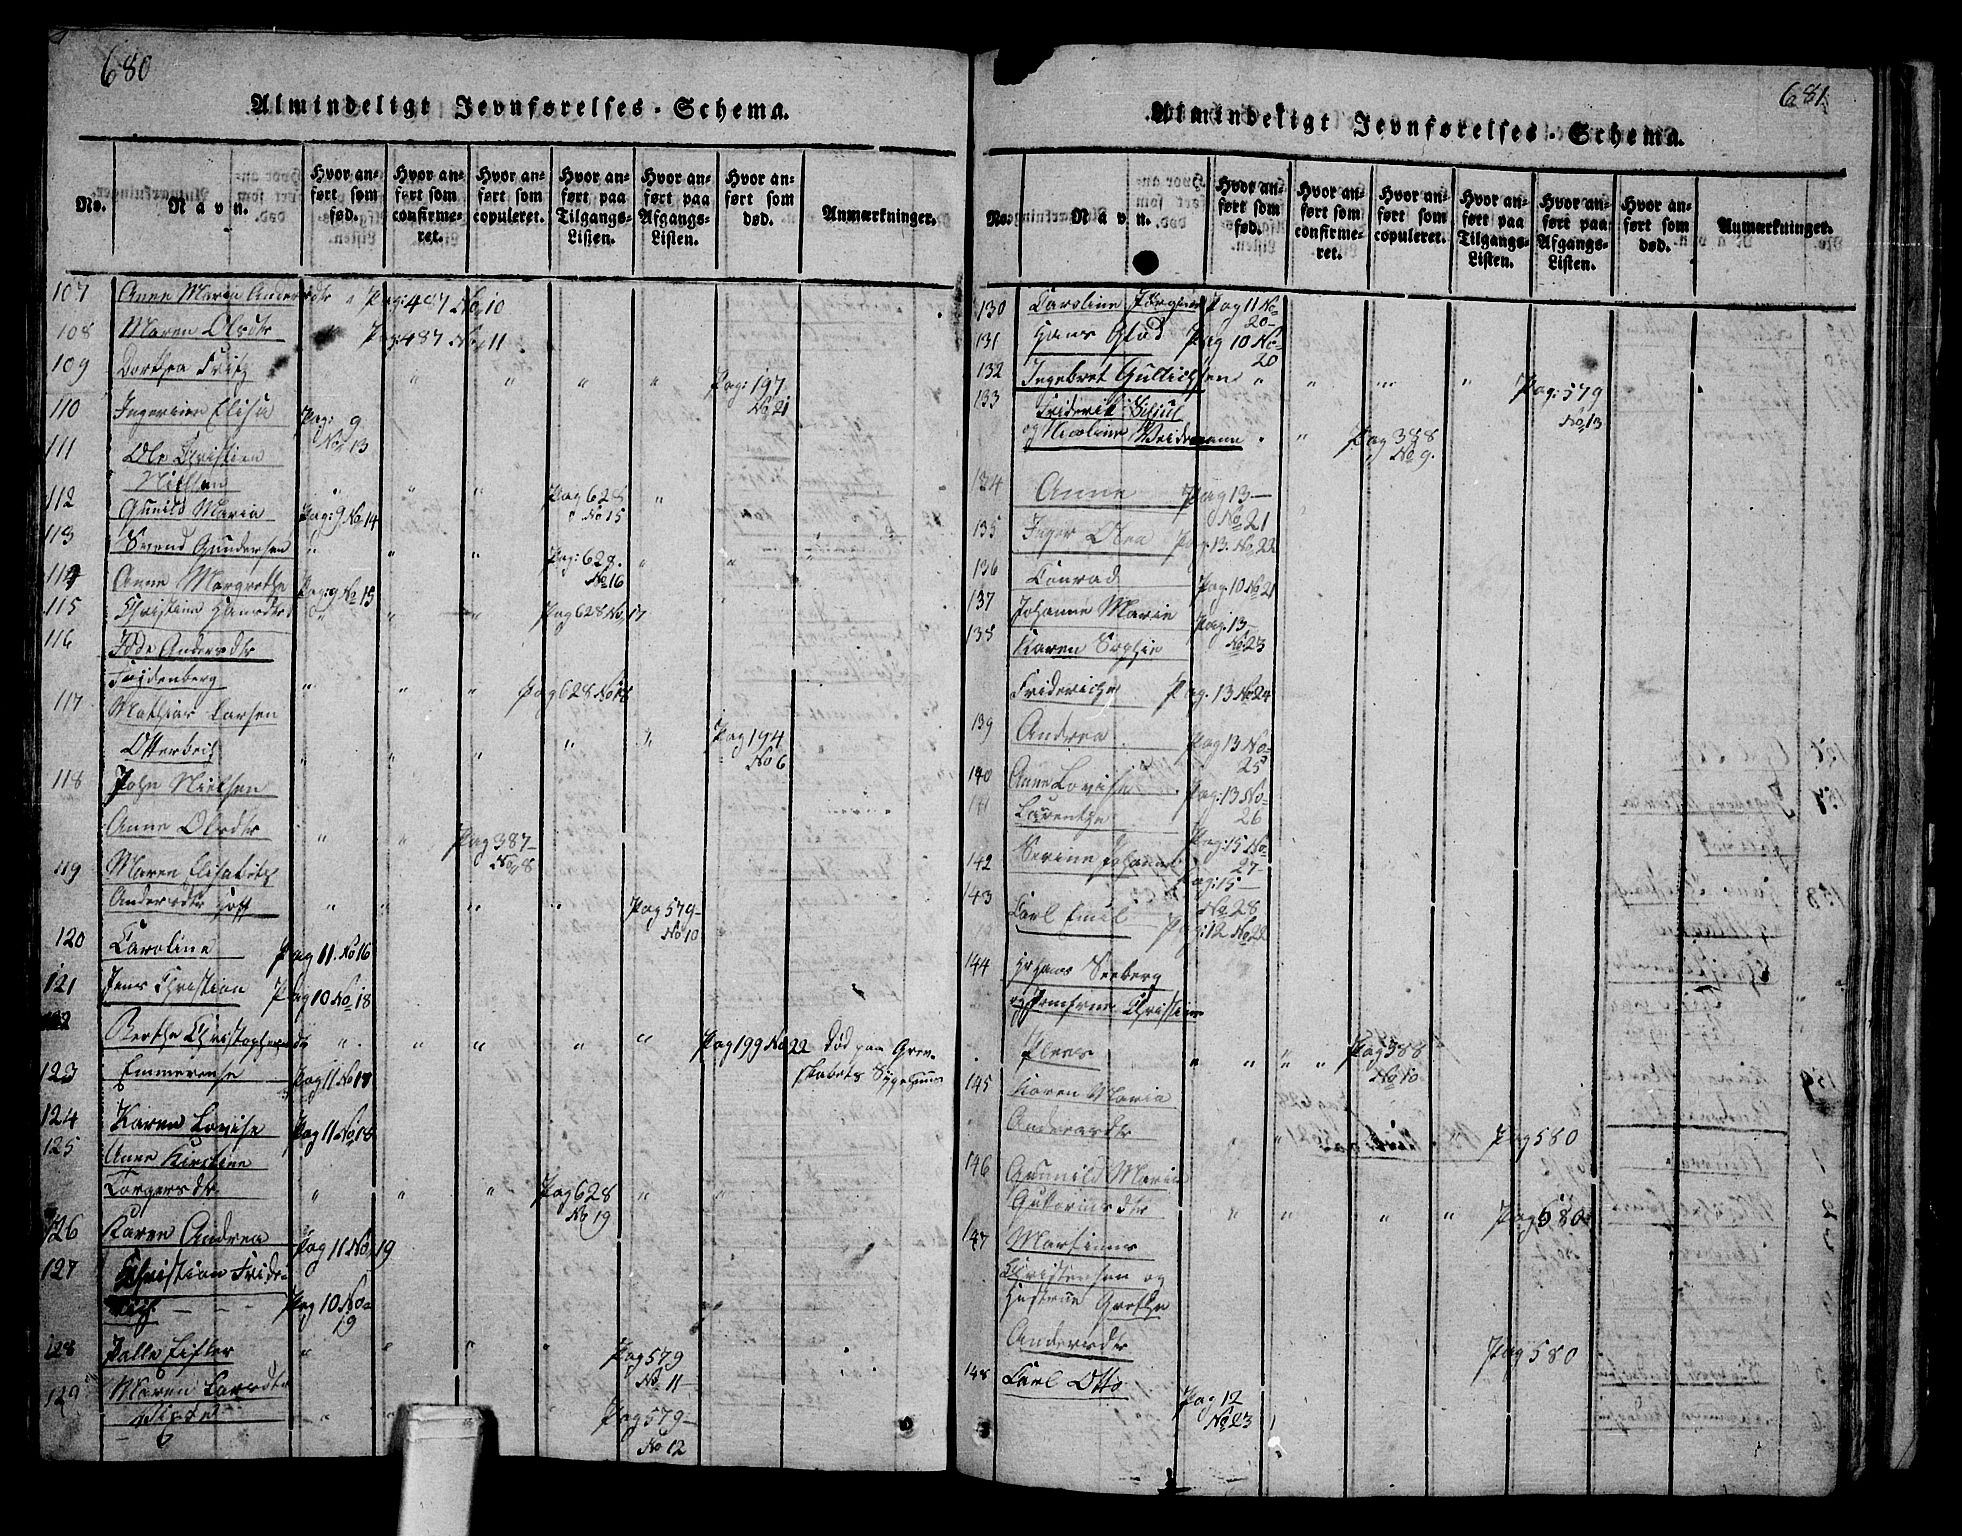 680
Almindeligt Jevnførelses-Schema.
No.
Navn.
Hvor anført som fød.
Hvor anført som confirmeret.
Hvor anført som copuleret.
Hvor anført paa Tilgangs-Listen.
Hvor anført paa Afgangs-Listen.
Hvor anført som død.
Anmærkninger.
107 Anne Maria Andersdtr " Pag: 487 No 10
108 Maren Olsdtr " Pag: 487 No 11
109 Dorthea Fritz " " " " Pag: 197 No 21
110 Elisa Pag: 9 No 13
111 Ole Christian
Nielsen " " " Pag 628 No 15 "
112 Gunild Maria Pag: 9 No 14
113 Svend Gundersen " " " Pag: 628. No 16 " "
114 Anne Margrethe Pag: 9 No 15
115 Christine Hansdtr " " " Pag 628 No 17
116 Andersdtr
" " " Pag 628 No
117 Mathias Larsen
Otterbech " " " " " Pag 194 No 6
118 John Nielsen
Anne Olsdtr " " Pag 387- No 8
119 Maren Elisabeth
Andersdtr " " " " Pag 579- No 10
120 Caroline Pag 11. No 16
121 Jens Christian Pag 10 No 18
122 Berthe Christophersdtr " " " " " Pag 199 No 22 død paa Grev-
123 Emmerense Pag 11 No 17 skabets Sygehuus
124 Karen Lovise Pag 11 No 18
125 Anne Kirstine
Torgersdtr " " " Pag 628 No 19 " "
126 Karen Andrea Pag 11 No 19
127 Christian Fride-
rich - - - Pag 10 No- 19
128 Palle " " " " Pag 579 No 11-
129 Maren Larsdtr
- " " Pag 579- No 12
681
Almindeligt Jevnførelses-Schema.
No.
Navn.
Hvor anført som fød.
Hvor anført som confirmeret.
Hvor anført som copuleret.
Hvor anført paa Tilgangs-Listen.
Hvor anført paa Afgangs-Listen.
Hvor anført som død.
Anmærkninger.
130 Caroline Pag 11 No- 20-
131 Hans Glad Pag 10 No- 20
132 Ingebret Gullichsen " " " " Pag: 579 No 13
133 Friderik
og Nicoline " " Pag 388 No 9.
134 Anne Pag 13- No 21
135 Inger Olea Pag. 13. No 22
136 Conrad Pag. 10 No 21
137 Johanne Marie Pag. 13- No 23
138 Karen Sophie
Friderichs Pag. 13 No 24
139 Andrea Pag 13 No- 25
140 Anne Lovise Pag: 13 No- 26
141 Laurentze Pag: 15 No- 27-
142 Serine Johanne Pag: 15- No 28
143 Carl Emil Pag: 12 No 22
144 Hr Hans Seeberg
og Jomfrue Christine
" " " " Pag 388 No 10-
145 Karen Maria
Andersdtr " " " Pag 580
146 Gunild Maria
" " " " Pag 580
147 Martinus
Christensen og
Hustrue Grethe
Andersdtr Pag 580
148 Carl Otto Pag 12 No 23